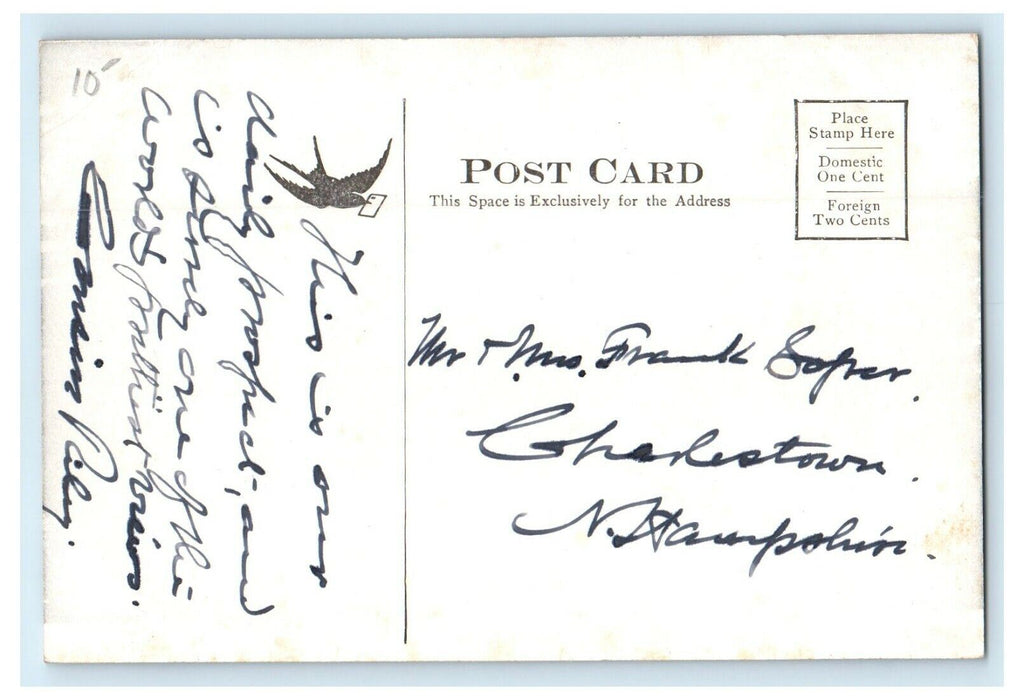 10
This is our
daily prospect, and
is surely one of the
world's prettiest views.
Cousin
POST CARD
This Space is Exclusively for the Address
Place
Stamp Here
Domestic
One Cent
Foreign
Two Cents
Mr & Mrs. Frank Soper.
Charlestown.
N. Hampshire.